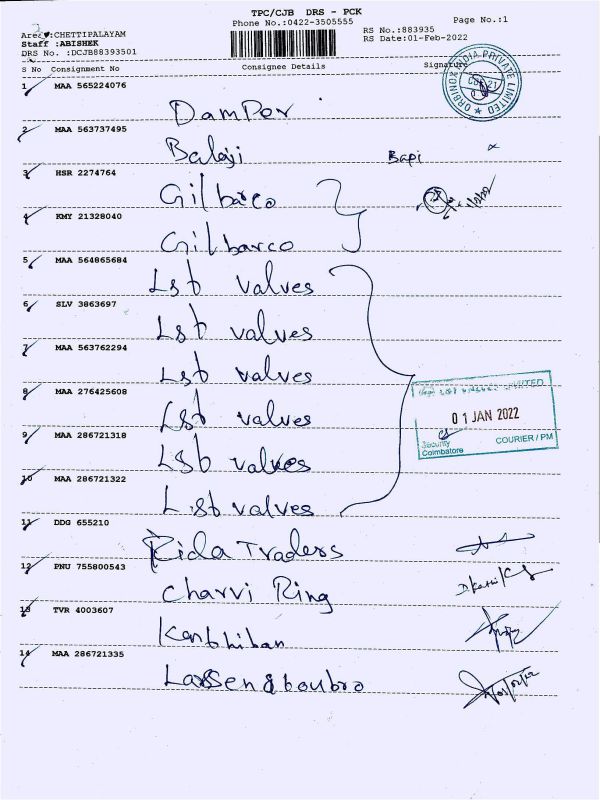 TPC/CJB DRS - PCK
Phone No.:0422-3505555
Page No.:1
Area :CHETTIPALAYAM
Staff :ABISHEK
DRS No. :DCJB88393501
RS No.:883935
RS Date:01-Feb-2022
S No Consignment No Consignee Details Signature
ORBINOX INDIA PRIVATE LIMITED
1 MAA 565224076
Dampor
2 MAA 563737495
Balaji Bapi
3 HSR 2274764
Gilbarco
4 KMY 21328040
Gilbarco
5 MAA 564865684
Lst valves
6 SLV 3863697
Lst valves
7 MAA 563762294
Lst valves
8 MAA 276425608
Lst valves
9 MAA 286721318
Lst valves
10 MAA 286721322
Lst valves
01 JAN 2022
Security
Coimbatore
COURIER / PM
11 DDG 655210
Rida Traders
12 PNU 755800543
Charvi Ring
13 TVR 4003607
Kanbhiban
14 MAA 286721335
Larsen & boubro